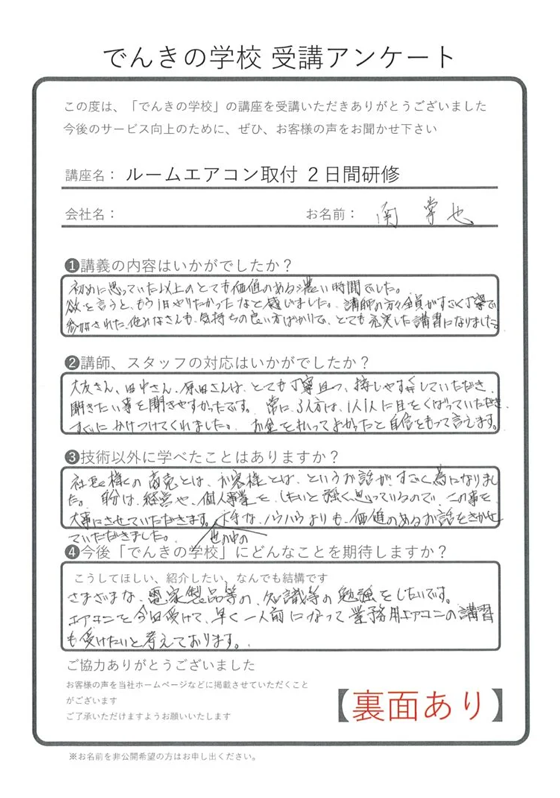 でんきの学校 受講アンケート
この度は、「でんきの学校」の講座を受講いただきありがとうございました
今後のサービス向上のために、ぜひ、お客様の声をお聞かせ下さい
講座名： ルームエアコン取付 ２日間研修
会社名： お名前： 南 也
❶講義の内容はいかがでしたか？
初めに思っていた以上のとても価値のある濃い時間でした。
欲を言うと、もう1日やりたかったなと感いました。講師の方々全員がすごく丁寧で
参加された他みなさんも、気持ちの良い方ばかりで、とても充実した講習になりました
❷講師、スタッフの対応はいかがでしたか？
大友さん、田中さん、原田さんは、とても丁寧且つ、接しやすくしていただき、
聞きたい事を聞きやすかったです。常に、3人方は、1人1人に目をくばっていただき、
すぐにかけつけてくれました。お金を払ってよかったと自信をもって言えます。
❸技術以外に学べたことはありますか？
社長様の商売とは、お客様とは、というお話がすごく為になりまし
た。自分は、経営や、個人事業を、したいと強く思っているので、この事を、
大事にさせていただきます。下手な、ハウハウよりも、価値のあるお話をきかせ
ていただきました。 世の中の
❹今後「でんきの学校」にどんなことを期待しますか？
こうしてほしい、紹介したい、なんでも結構です
さまざまな、電家製品等の、知識等の勉強をしたいです。
エアコンを今回受けて、早く一人前になって業務用エアコンの講習
も受けたいと考えております。
ご協力ありがとうございました
お客様の声を当社ホームページなどに掲載させていただくこと
がございます
ご了承いただけますようお願いいたします
【裏面あり】
※お名前を非公開希望の方はお申し出ください。